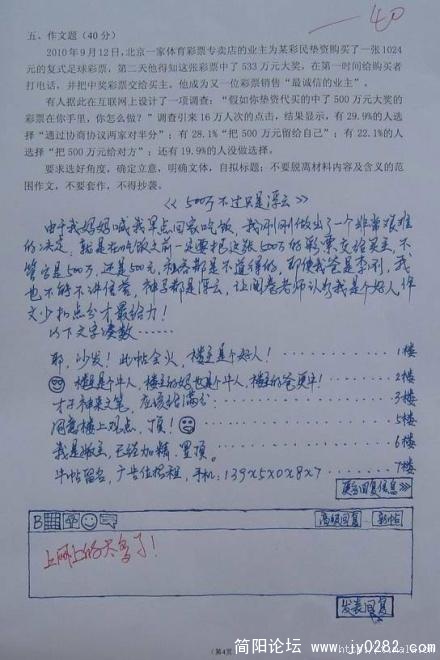 -40
五、作文题（40 分）
2010 年 9 月 12 日,北京一家体育彩票专卖店的业主为某彩民垫资购买了一张 1024
元的复式足球彩票,第二天他得知这张彩票中了 533 万元大奖,在第一时间给购买者
打电话,并把中奖彩票交给买主。他成为又一位彩票销售“最诚信的业主”。
有人据此在互联网上设计了一项调查:“假如你垫资代买的中了 500 万元大奖的
彩票在你手里,你怎么做？”调查引来 16 万人次的点击,结果显示,有 29.9%的人选
择“通过协商协议两家对半分”;有 28.1%“把 500 万元留给自己”;有 22.1%的人
选择“把 500 万元给对方”;还有 19.9%的人没做选择。
要求选好角度,确定立意,明确文体,自拟标题;不要脱离材料内容及含义的范
围作文,不要套作,不得抄袭。
《500万不过只是浮云》
由于我妈妈喊我早点回家吃饭,我刚刚做出了一个非常艰难
的决定,就是在吃饭之前一定要把这张500万的彩票交给买主,不
管它是500万,还是500元,私吞都是不道德的,即使我爸是李刚,我
也不能不讲信誉,神马都是浮云,让阅卷老师认为我是个好人,作
文少扣点分才最给力!
以下文字凑数……
耶,沙发!此帖会火,楼主是个好人! 1楼
楼主是个牛人,楼主的妈也是个牛人,楼主的爸更牛! 2楼
才子神来之笔,应该给满分 3楼
同意楼上观点,顶! 5楼
我是版主,已经加精、置顶。 6楼
牛帖留名,广告位招租,手机:139x5x0x8x7 7楼
更多回复信息>>
B
高级回复 新帖
上网上的太多了!
发表回复
（第4页
简阳论坛 www.jy0282.com